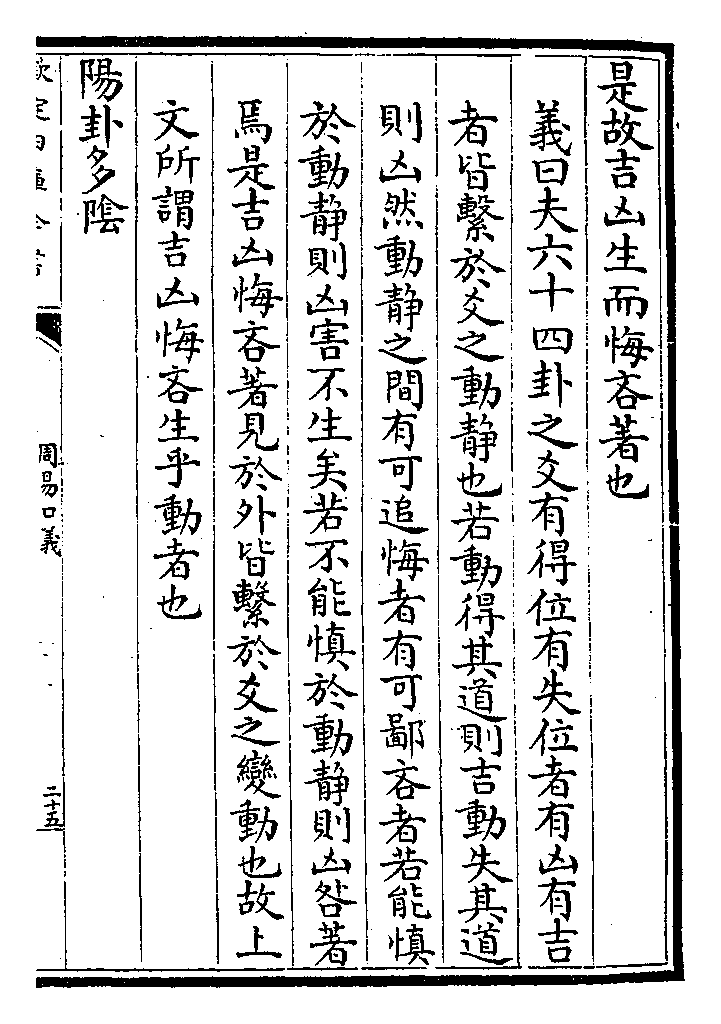 是故吉凶生而悔吝著也
義曰夫六十四卦之爻有得位有失位者有凶有吉
者皆繫於爻之動静也若動得其道則吉動失其道
則凶然動静之間有可追悔者有可鄙吝者若能慎
於動静則凶害不生矣若不能慎於動静則凶咎著
焉是吉凶悔吝著見於外皆繫於爻之變動也故上
文所謂吉凶悔吝生乎動者也
陽卦多陰
周易口義
二十五